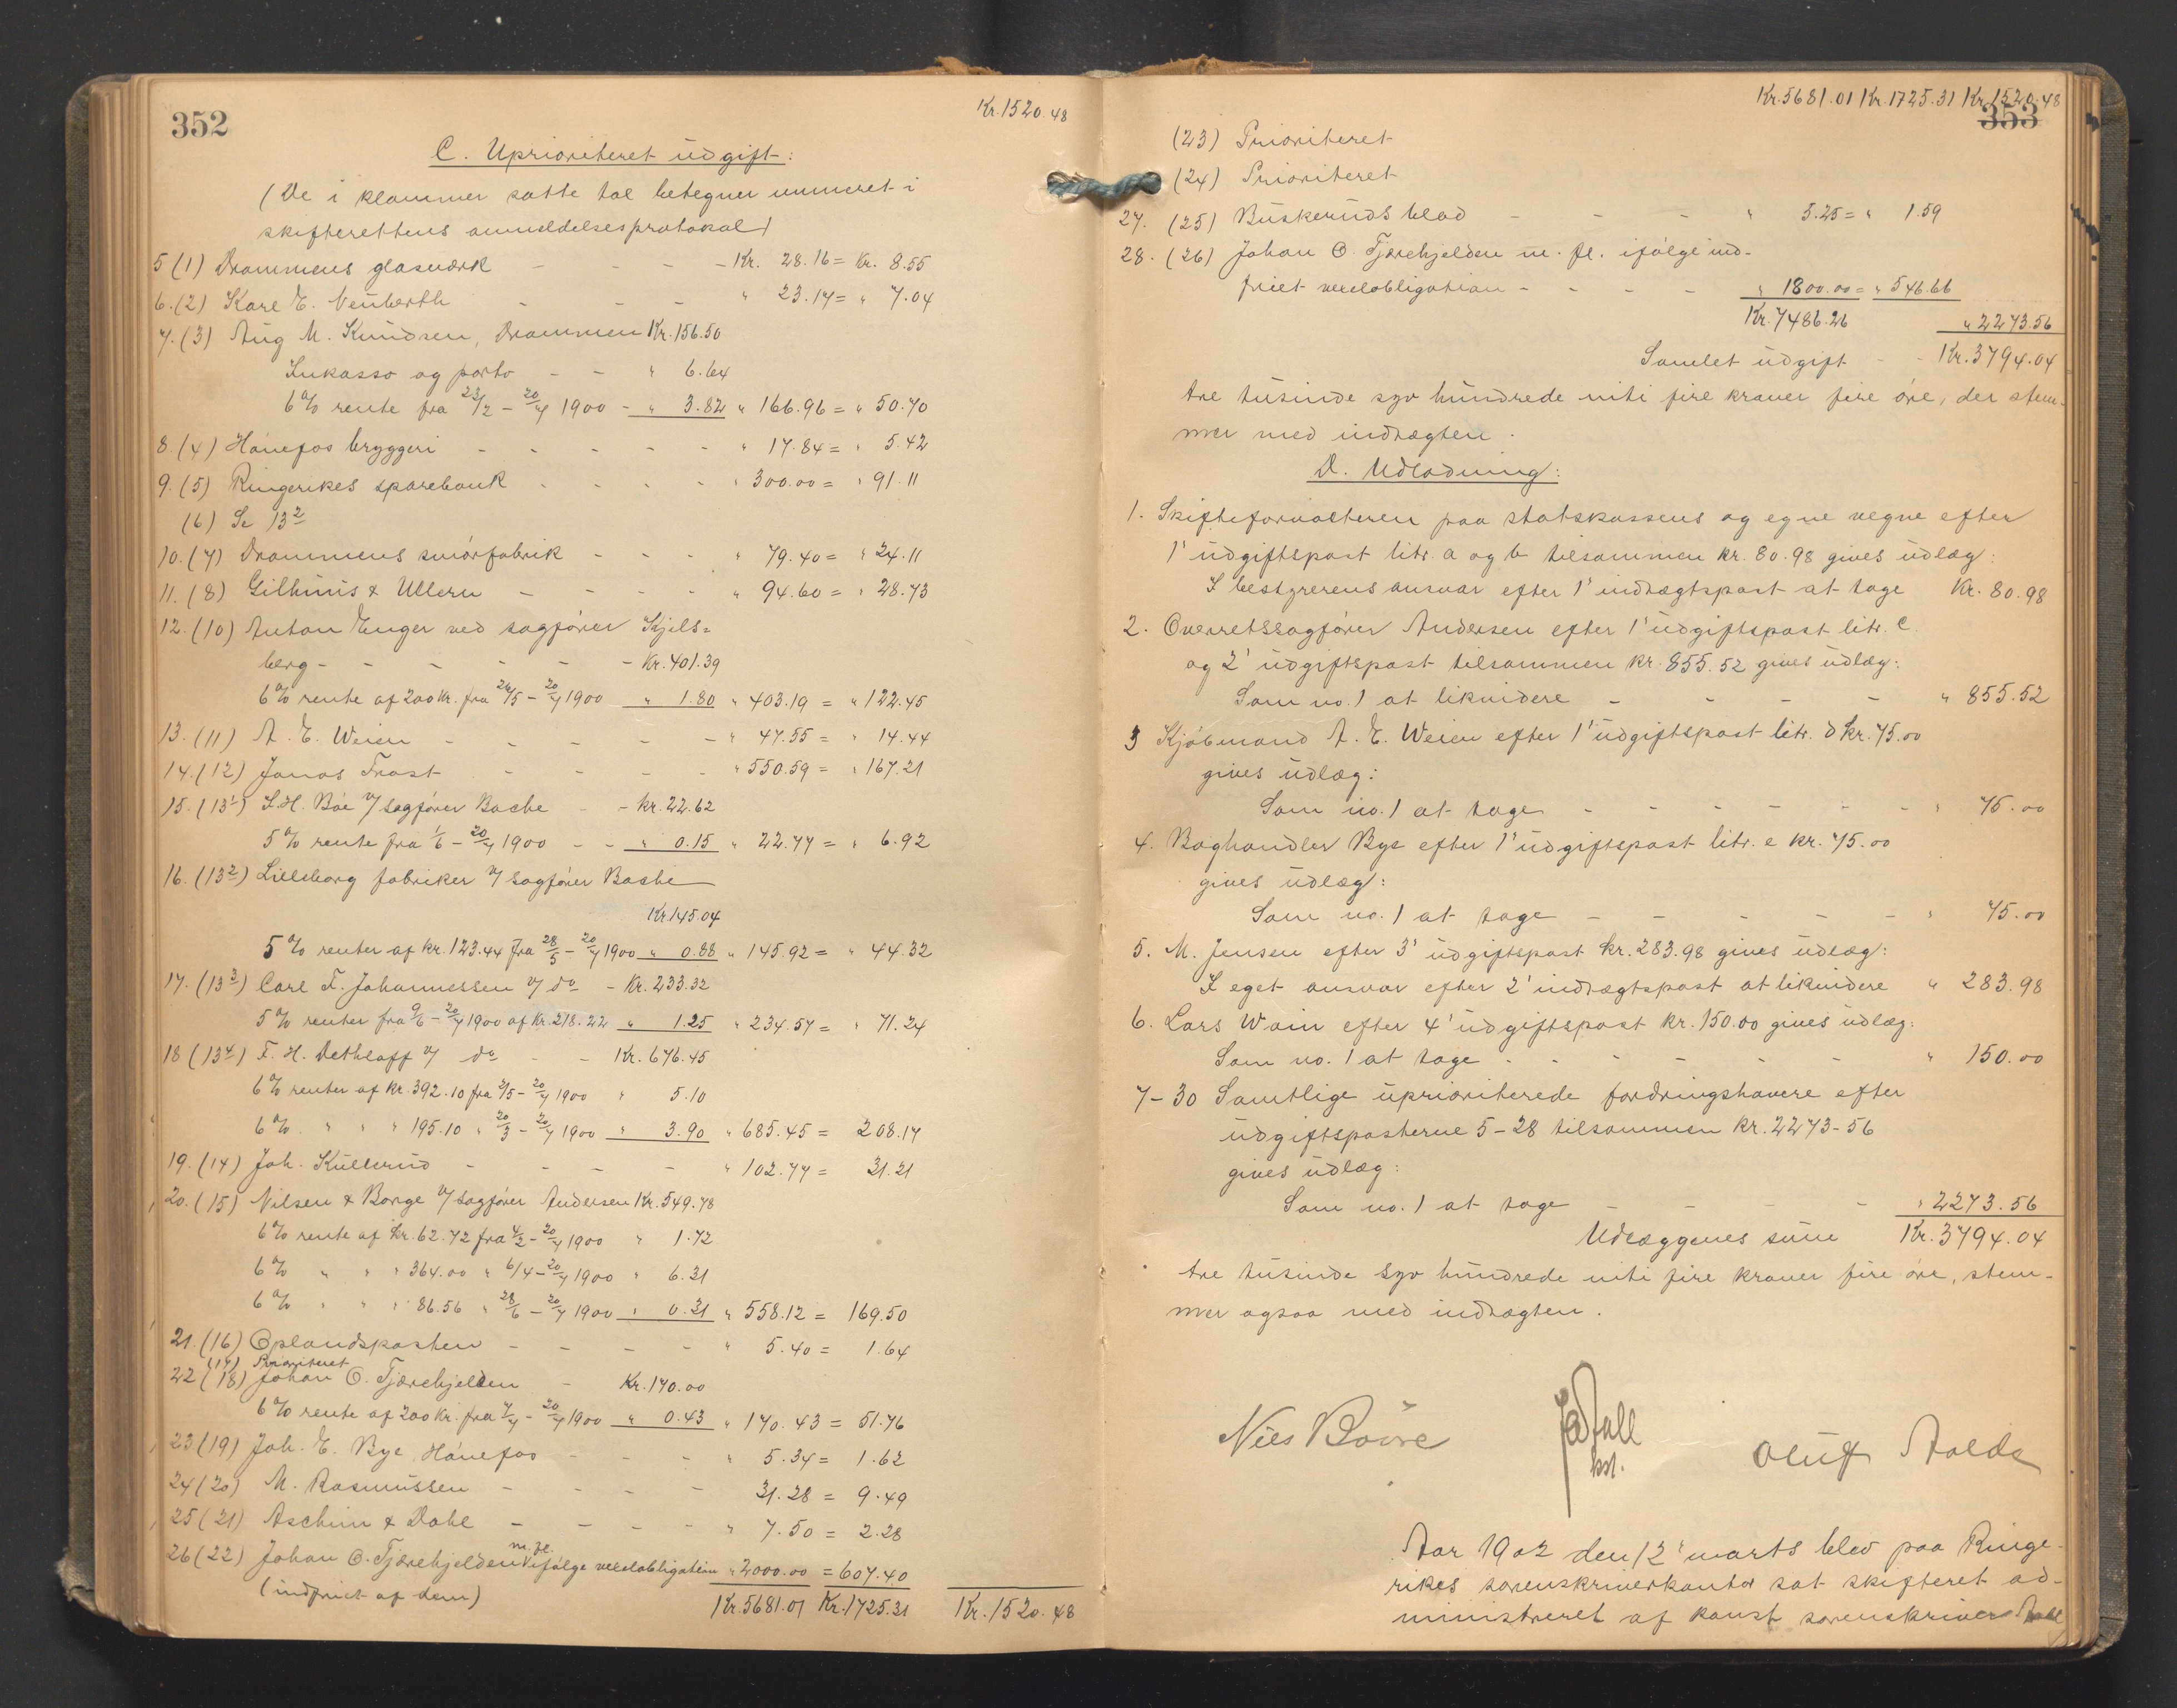 352
Kr. 1520.48
C. Uprioriteret udgift:
(De i klammer satte tal betegner numeret i
skifterettens anmeldelsesprotokol)
5 (1) Drammens glasværk - - - - Kr. 28.16 = Kr. 8.55
6. (2) Karl E. Neuberth - - - " 23.17 = " 7.04
7. (3) Aug M. Knudsen, Drammen Kr. 156.50
Inkasso og porto - - " 6.64
6% rente fra 23/2 - 20/7 1900 - " 3.82 " 166.96 = " 50.70
8. (4) Hönefos bryggeri - - - - - " 17.84 = " 5.42
9. (5) Ringerikes sparebank - - - - " 300.00 = " 91.11
(6) Se 13²
10. (7) Drammens smörfabrik - - - " 79.40 = " 24.11
11. (8) Gilhuus & Ullern - - - - " 94.60 = " 28.73
12. (10) Anton Enger ved sagförer Skjels=
berg - - - - - - Kr. 401.39
6% rente af 200 kr. fra 26/5 - 20/7 1900 " 1.80 " 403.19 = " 122.45
13. (11) A. E. Weien - - - - - " 47.55 = " 14.44
14. (12) Jonas Frost - - - - " 550.59 = " 167.21
15. (13¹) S. H. Böe v/ sagförer Bache - - kr. 22.62
5% rente fra 1/6 - 20/7 1900 - - " 0.15 " 22.77 = " 6.92
16. (13²) Lilleborg fabriker v/ sagförer Bache
Kr. 145.04
5% renter af kr. 123.44 fra 28/5 - 20/7 1900 " 0.88 " 145.92 = " 44.32
17. (13³) Carl F. Johannessen v/ do - Kr. 233.32
5% renter fra 9/6 - 20/7 1900 af kr. 218.22 " 1.25 " 234.57 = " 71.24
18 (13⁴) F. H. Dethloff v/ do - - Kr. 676.45
6% renter af kr. 392.10 fra 3/5 - 20/7 1900 " 5.10
6% " " " 195.10 " 20/3 - 20/7 1900 " 3.90 " 685.45 = 208.17
19. (14) Joh. Kullerud - - - - " 102.77 = 31.21
20. (15) Nilsen & Borge v/ sagförer Andersen Kr. 549.78
6% rente af kr. 62.72 fra 4/2 - 20/7 1900 " 1.72
6% " " " 364.00 " 6/4 - 20/7 1900 " 6.31
6% " " " 86.56 " 28/6 - 20/7 1900 " 0.31 " 558.12 = 169.50
21. (16) Oplandsposten - - - - " 5.40 = 1.64
(17) Prioriteret
22 (18) Johan O. Tjærehjelden - Kr. 170.00
6% rente af 200 kr. fra 7/7 - 20/7 1900 " 0.43 " 170.43 = 51.76
23. (19) Joh. E. Bye, Hönefos - - - " 5.34 = 1.62
24 (20) M. Rasmussen - - - - 31.28 = 9.49
25 (21) Aschim & Dahl - - - - " 7.50 = 2.28
m. fl.
26 (22) Johan O. Tjærehjelden ifölge vexelobligation " 2000.00 = 607.40
(indfriet af dem) Kr. 5681.01 Kr. 1725.31 Kr. 1520.48
Kr. 5681.01 Kr. 1725.31 Kr. 1520.48
353
(23) Prioriteret
(24) Prioriteret
27. (25) Buskeruds blad - - - " 5.25 = " 1.59
28. (26) Johan O. Tjærehjelden m. fl. ifölge ind-
friet vexelobligation - - - - " 1800.00 = " 546.66
Kr. 7486.26 " 2273.56
Samlet udgift - - Kr. 3794.04
tre tusinde syv hundrede niti fire kroner fire öre, der stem-
mer med indtægten.
D. Udlodning:
1. Skifteforvalteren paa statskassens og egne vegne efter
1' udgiftspost litr. a og b tilsammen kr. 80.98 gives udlæg:
I bestyrerens ansvar efter 1' indtægtspost at tage Kr. 80.98
2. Overretssagförer Andersen efter 1' udgiftspost litr. c.
og 2' udgiftspost tilsammen kr. 855.52 gives udlæg:
Som no. 1 at likvidere - - - - " 855.52
3 Kjöbmand A. E. Weien efter 1' udgiftspost litr. d kr. 75.00
gives udlæg:
Som no. 1 at tage - - - - - - " 75.00
4. Boghandler Bye efter 1' udgiftspost litr. e kr. 75.00
gives udlæg:
Som no. 1 at tage - - - - - " 75.00
5. M. Jensen efter 3' udgiftspost kr. 283.98 gives udlæg:
I eget ansvar efter 2' indtægtspost at likvidere " 283.98
6. Lars Woin efter 4' udgiftspost kr. 150.00 gives udlæg:
Som no. 1 at tage - - - - - - " 150.00
7-30 Samtlige uprioriterede fordringshavere efter
udgiftsposterne 5-28 tilsammen kr. 2273-56
gives udlæg:
Som no. 1 at tage - - - - " 2273.56
Udlæggenes sum Kr. 3794.04
tre tusinde syv hundrede niti fire kroner fire öre, stem-
mer ogsaa med indtægten.
Nils
kst.
Oluf
Aar 1902 den 12' marts blev paa Ringe-
rikes sorenskriverkontor sat skifteret ad-
ministreret af konst. sorenskriver